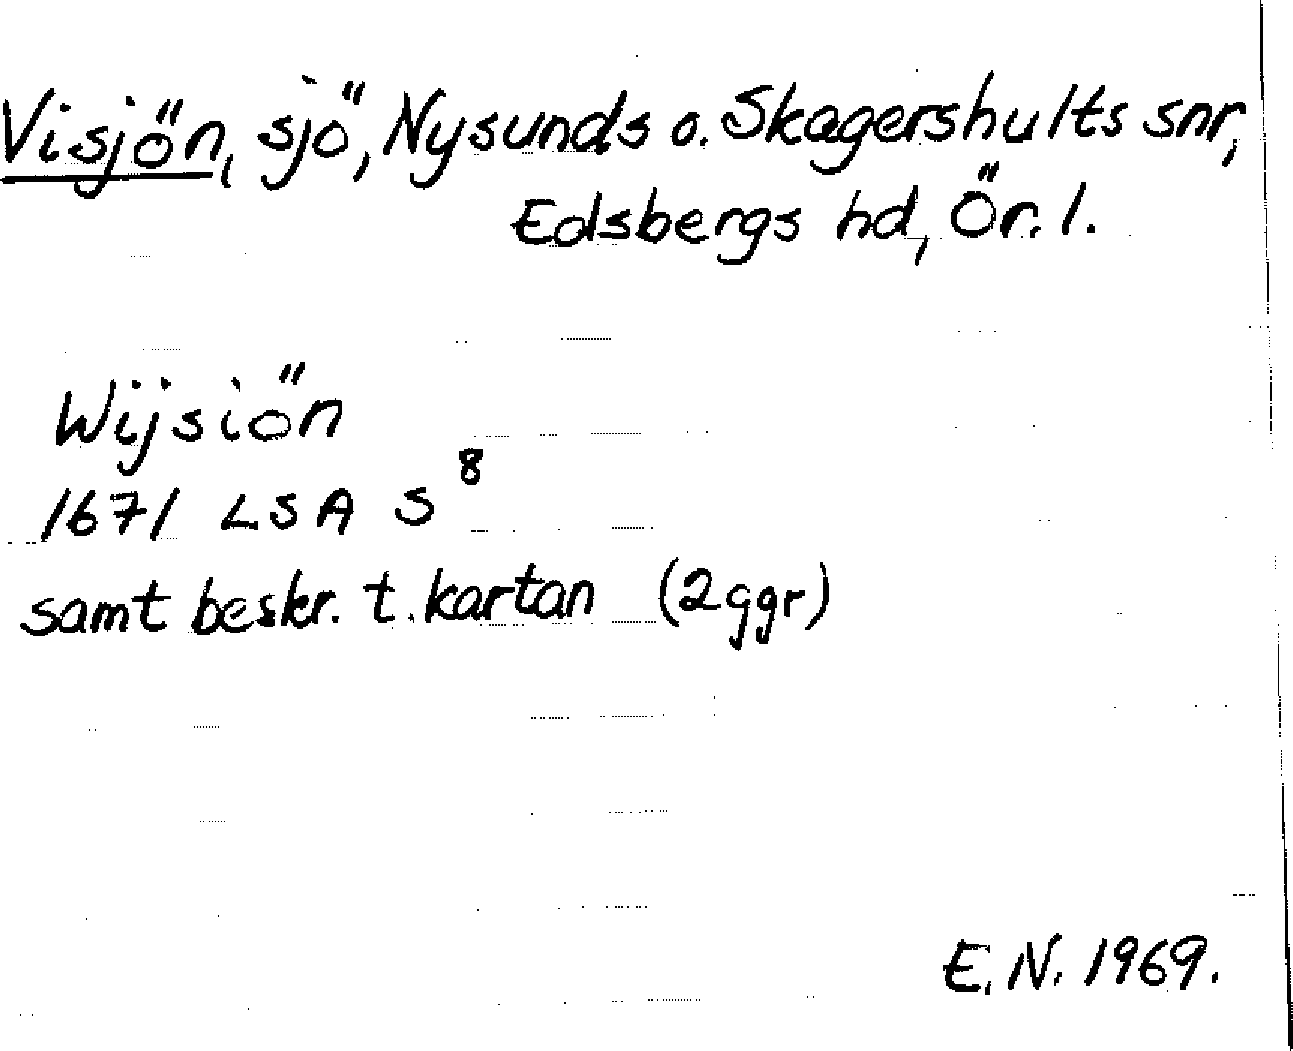 Visjön, sjö, Nysunds o. Skagershults snr,
Edsbergs hd, Ör. l.
Wijsiön
1671 LSA S⁸
samt beskr. t. kartan (2ggr)
E. N. 1969.